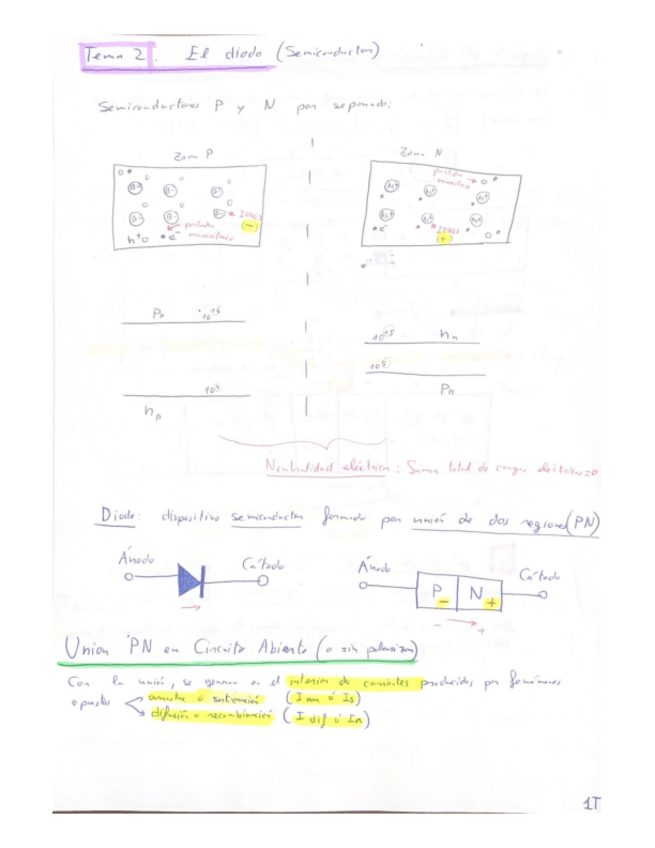 Tema 2. El diodo (Semiconductor)
Semiconductores P y N por separado:
Zona P
B-
B-
B-
B-
B-
B-
IONES
-
h+
e-
portador
minoritario
Zona N
portador
minoritario
As+
As+
As+
As+
As+
As+
e-
IONES
+
Pp
10^16
np
10^15
nn
Pn
Neutralidad eléctrica: Suma total de cargas eléctricas=0
Diodo: dispositivo semiconductor formado por unión de dos regiones (PN)
Ánodo
Cátodo
Ánodo
P
-
N
+
Cátodo
- +
Union PN en Circuito Abierto (o sin polarizar)
Con la unión, se generan en el interior dos corrientes producidas por fenómenos
opuestos
arrastre o saturación (I arr ó Is)
difusión o recombinación (I dif ó IR)
1T